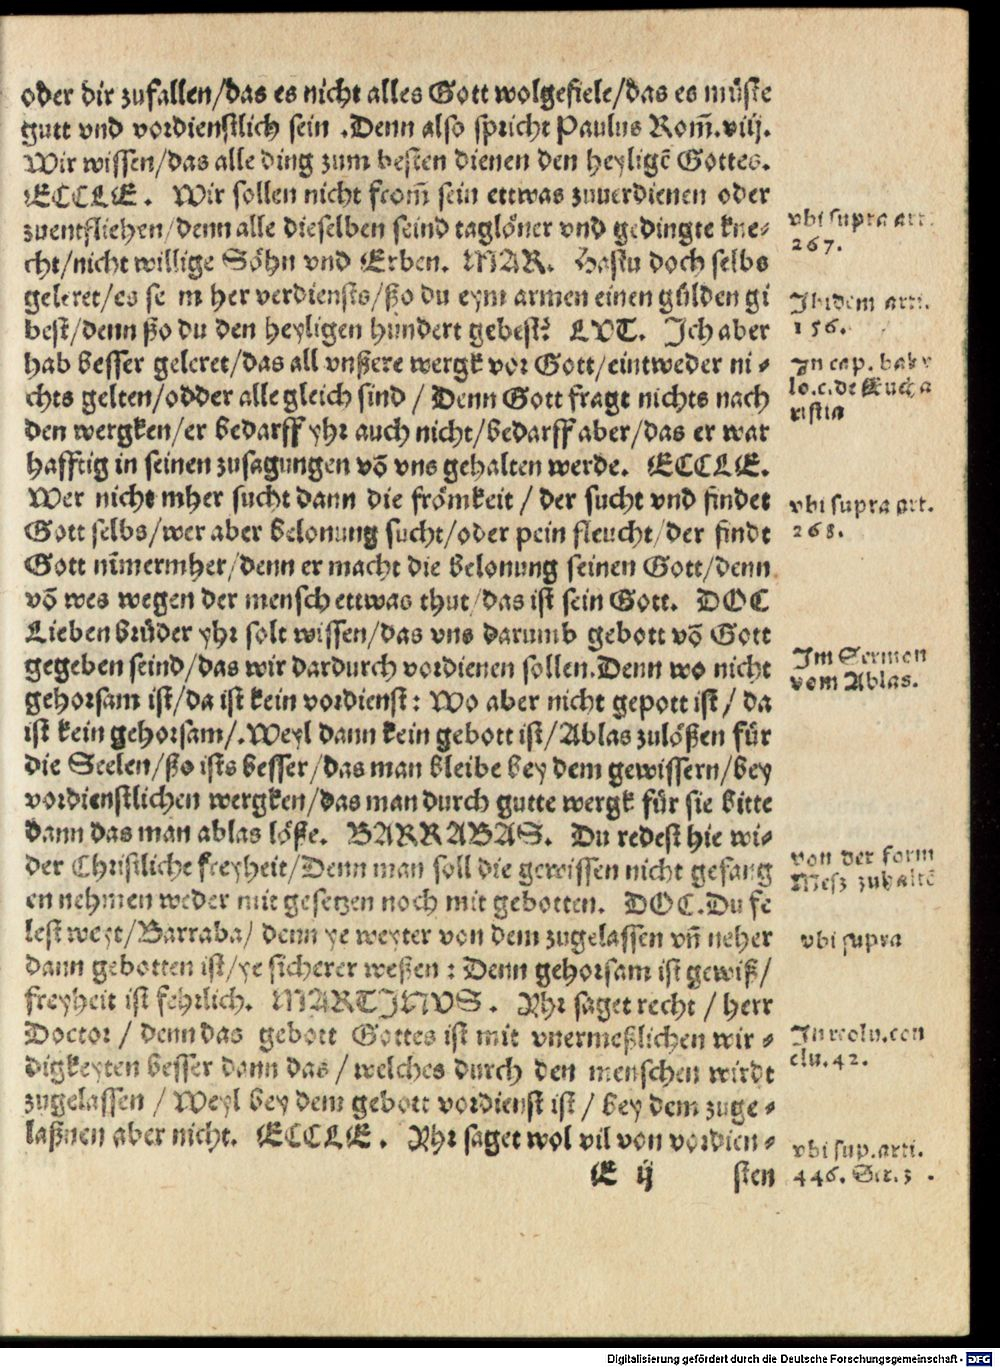 oder dir zufallen/das es nicht alles Gott wolgefiele/das es müste
gutt vnd vordienstlich sein .Denn also spricht Paulus Rom̃.viij.
Wir wissen/das alle ding zum besten dienen den heyligẽ Gottes.
ECCLE. Wir sollen nicht from̃ sein ettwas zuuerdienen oder
zuentfliehen/denn alle dieselben seind taglöner vnd gedingte kne⸗
cht/nicht willige Söhn vnd Erben. MAR. Hastu doch selbs
geleret/es se m her verdiensts/ßo du eym armen einen gülden gi
best/denn ßo du den heyligen hundert gebest? LVT. Ich aber
hab besser geleret/das all vnßere wergk vor Gott/eintweder ni⸗
chts gelten/odder alle gleich sind / Denn Gott fragt nichts nach
den wergken/er bedarff yhr auch nicht/bedarff aber/das er war
hafftig in seinen zusagungen võ vns gehalten werde. ECCLE.
Wer nicht mher sucht dann die frömkeit / der sucht vnd findet
Gott selbs/wer aber belonung sucht/oder pein fleucht/der findt
Gott nim̃ermher/denn er macht die belonung seinen Gott/denn
võ wes wegen der mensch ettwas thut/das ist sein Gott. DOC
Lieben brüder yhr solt wissen/das vns darumb gebott võ Gott
gegeben seind/das wir dardurch vordienen sollen.Denn wo nicht
gehorsam ist/da ist kein vordienst: Wo aber nicht gepott ist / da
ist kein gehorsam/.Weyl dann kein gebott ist/Ablas zulößen für
die Seelen/ßo ists besser/das man bleibe bey dem gewissern/bey
vordienstlichen wergken/das man durch gutte wergk für sie bitte
dann das man ablas löße. BARRABAS. Du redest hie wi⸗
der Christliche freyheit/Denn man soll die gewissen nicht gefang
en nehmen weder mit gesetzen noch mit gebotten. DOC.Du fe
lest weyt/Barraba/ denn ye weyter von dem zugelassen vñ neher
dann gebotten ist/ye sicherer weßen : Denn gehorsam ist gewiß/
freyheit ist fehrlich. MARTINVS. Yhr saget recht / herr
Doctor / denn das gebott Gottes ist mit vnermeßlichen wir⸗
digkeyten besser dann das / welches durch den menschen wirdt
zugelassen / Weyl bey dem gebott vordienst ist / bey dem zuge⸗
laßnen aber nicht. ECCLE. Yhr saget wol vil von vordien⸗
E ij sten
vbi supra art.
267.
Ibidem arti.
156.
In cap. baby
lo.c.de Eucha
ristia
vbi supra art.
268.
Im Sermon
vom Ablas.
von der form
Mesz zuhaltẽ
vbi supra
In resolu.con
clu.42.
vbi sup.arti.
446. Ser.3 .
Digitalisierung gefördert durch die Deutsche Forschungsgemeinschaft - DFG